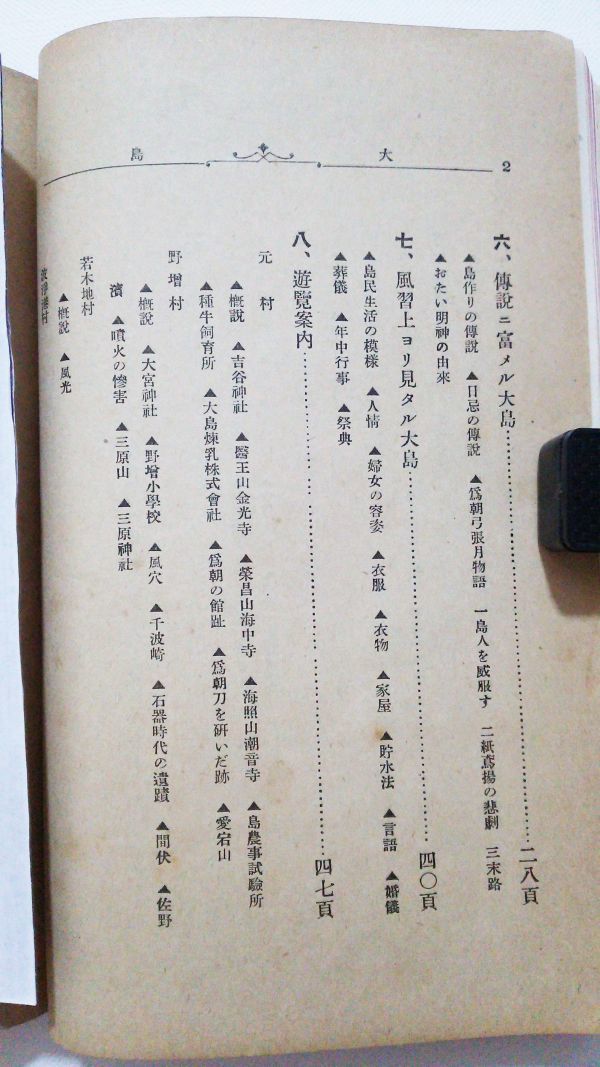 2
大島
六、傳說ニ富メル大島……………………二八頁
▲島作りの傳說 ▲日忌の傳說 ▲爲朝弓張月物語 一島人を威服す 二紙鳶揚の悲劇 三末路
▲おたい明神の由來
七、風習上ヨリ見タル大島……………………四〇頁
▲島民生活の模樣 ▲人情 ▲婦女の容姿 ▲衣服 ▲衣物 ▲家屋 ▲貯水法 ▲言語 ▲婚儀
▲葬儀 ▲年中行事 ▲祭典
八、遊覽案內……………………四七頁
元村
▲槪說 ▲吉谷神社 ▲醫王山金光寺 ▲榮昌山海中寺 ▲海照山潮音寺 ▲島農事試驗所
▲種牛飼育所 ▲大島煉乳株式會社 ▲爲朝の館趾 ▲爲朝刀を硏いだ跡 ▲愛宕山
野增村
▲槪說 ▲大宮神社 ▲野增小學校 ▲風穴 ▲千波崎 ▲石器時代の遺蹟 ▲間伏 ▲佐野
濱 ▲噴火の慘害 ▲三原山 ▲三原神社
若木地村
▲槪說 ▲風光
港村